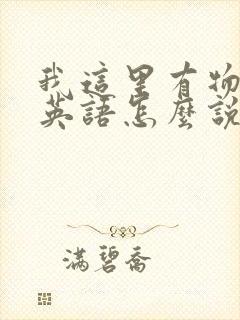 我這里有物
英語怎麼說
滿碧喬